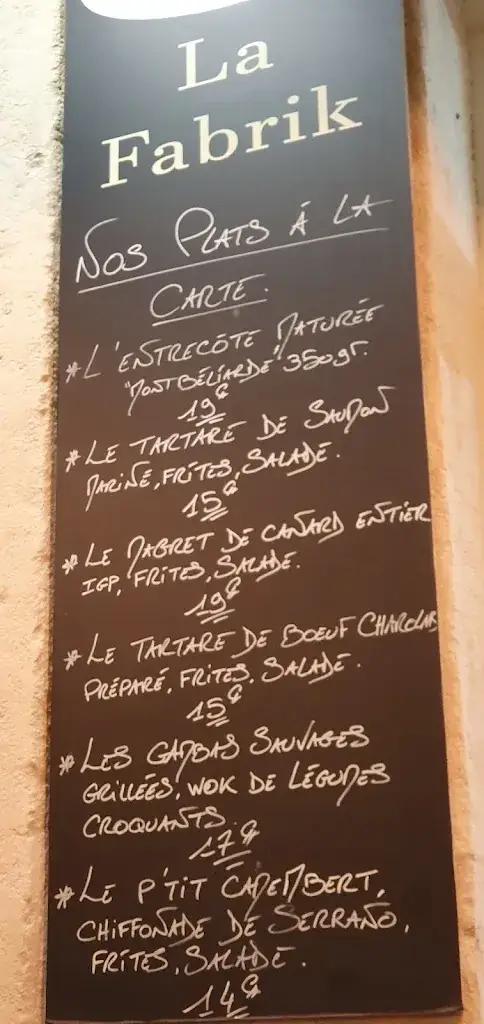 La
Fabrik
NOS PLATS À LA
CARTE.
* L'ENTRECÔTE MATURÉE
"MONTBÉLIARDE" 350gr.
19€
* LE TARTARE DE SAUMON
MARINÉ, FRITES, SALADE.
15€
* LE MAGRET DE CANARD ENTIER
IGP, FRITES, SALADE.
19€
* LE TARTARE DE BOEUF CHAROLAIS
PRÉPARÉ, FRITES, SALADE.
15€
* LES GAMBAS SAUVAGES
GRILLÉES, WOK DE LÉGUMES
CROQUANTS.
17€
* LE P'TIT CAMEMBERT,
CHIFFONADE DE SERRANO,
FRITES, SALADE.
14€